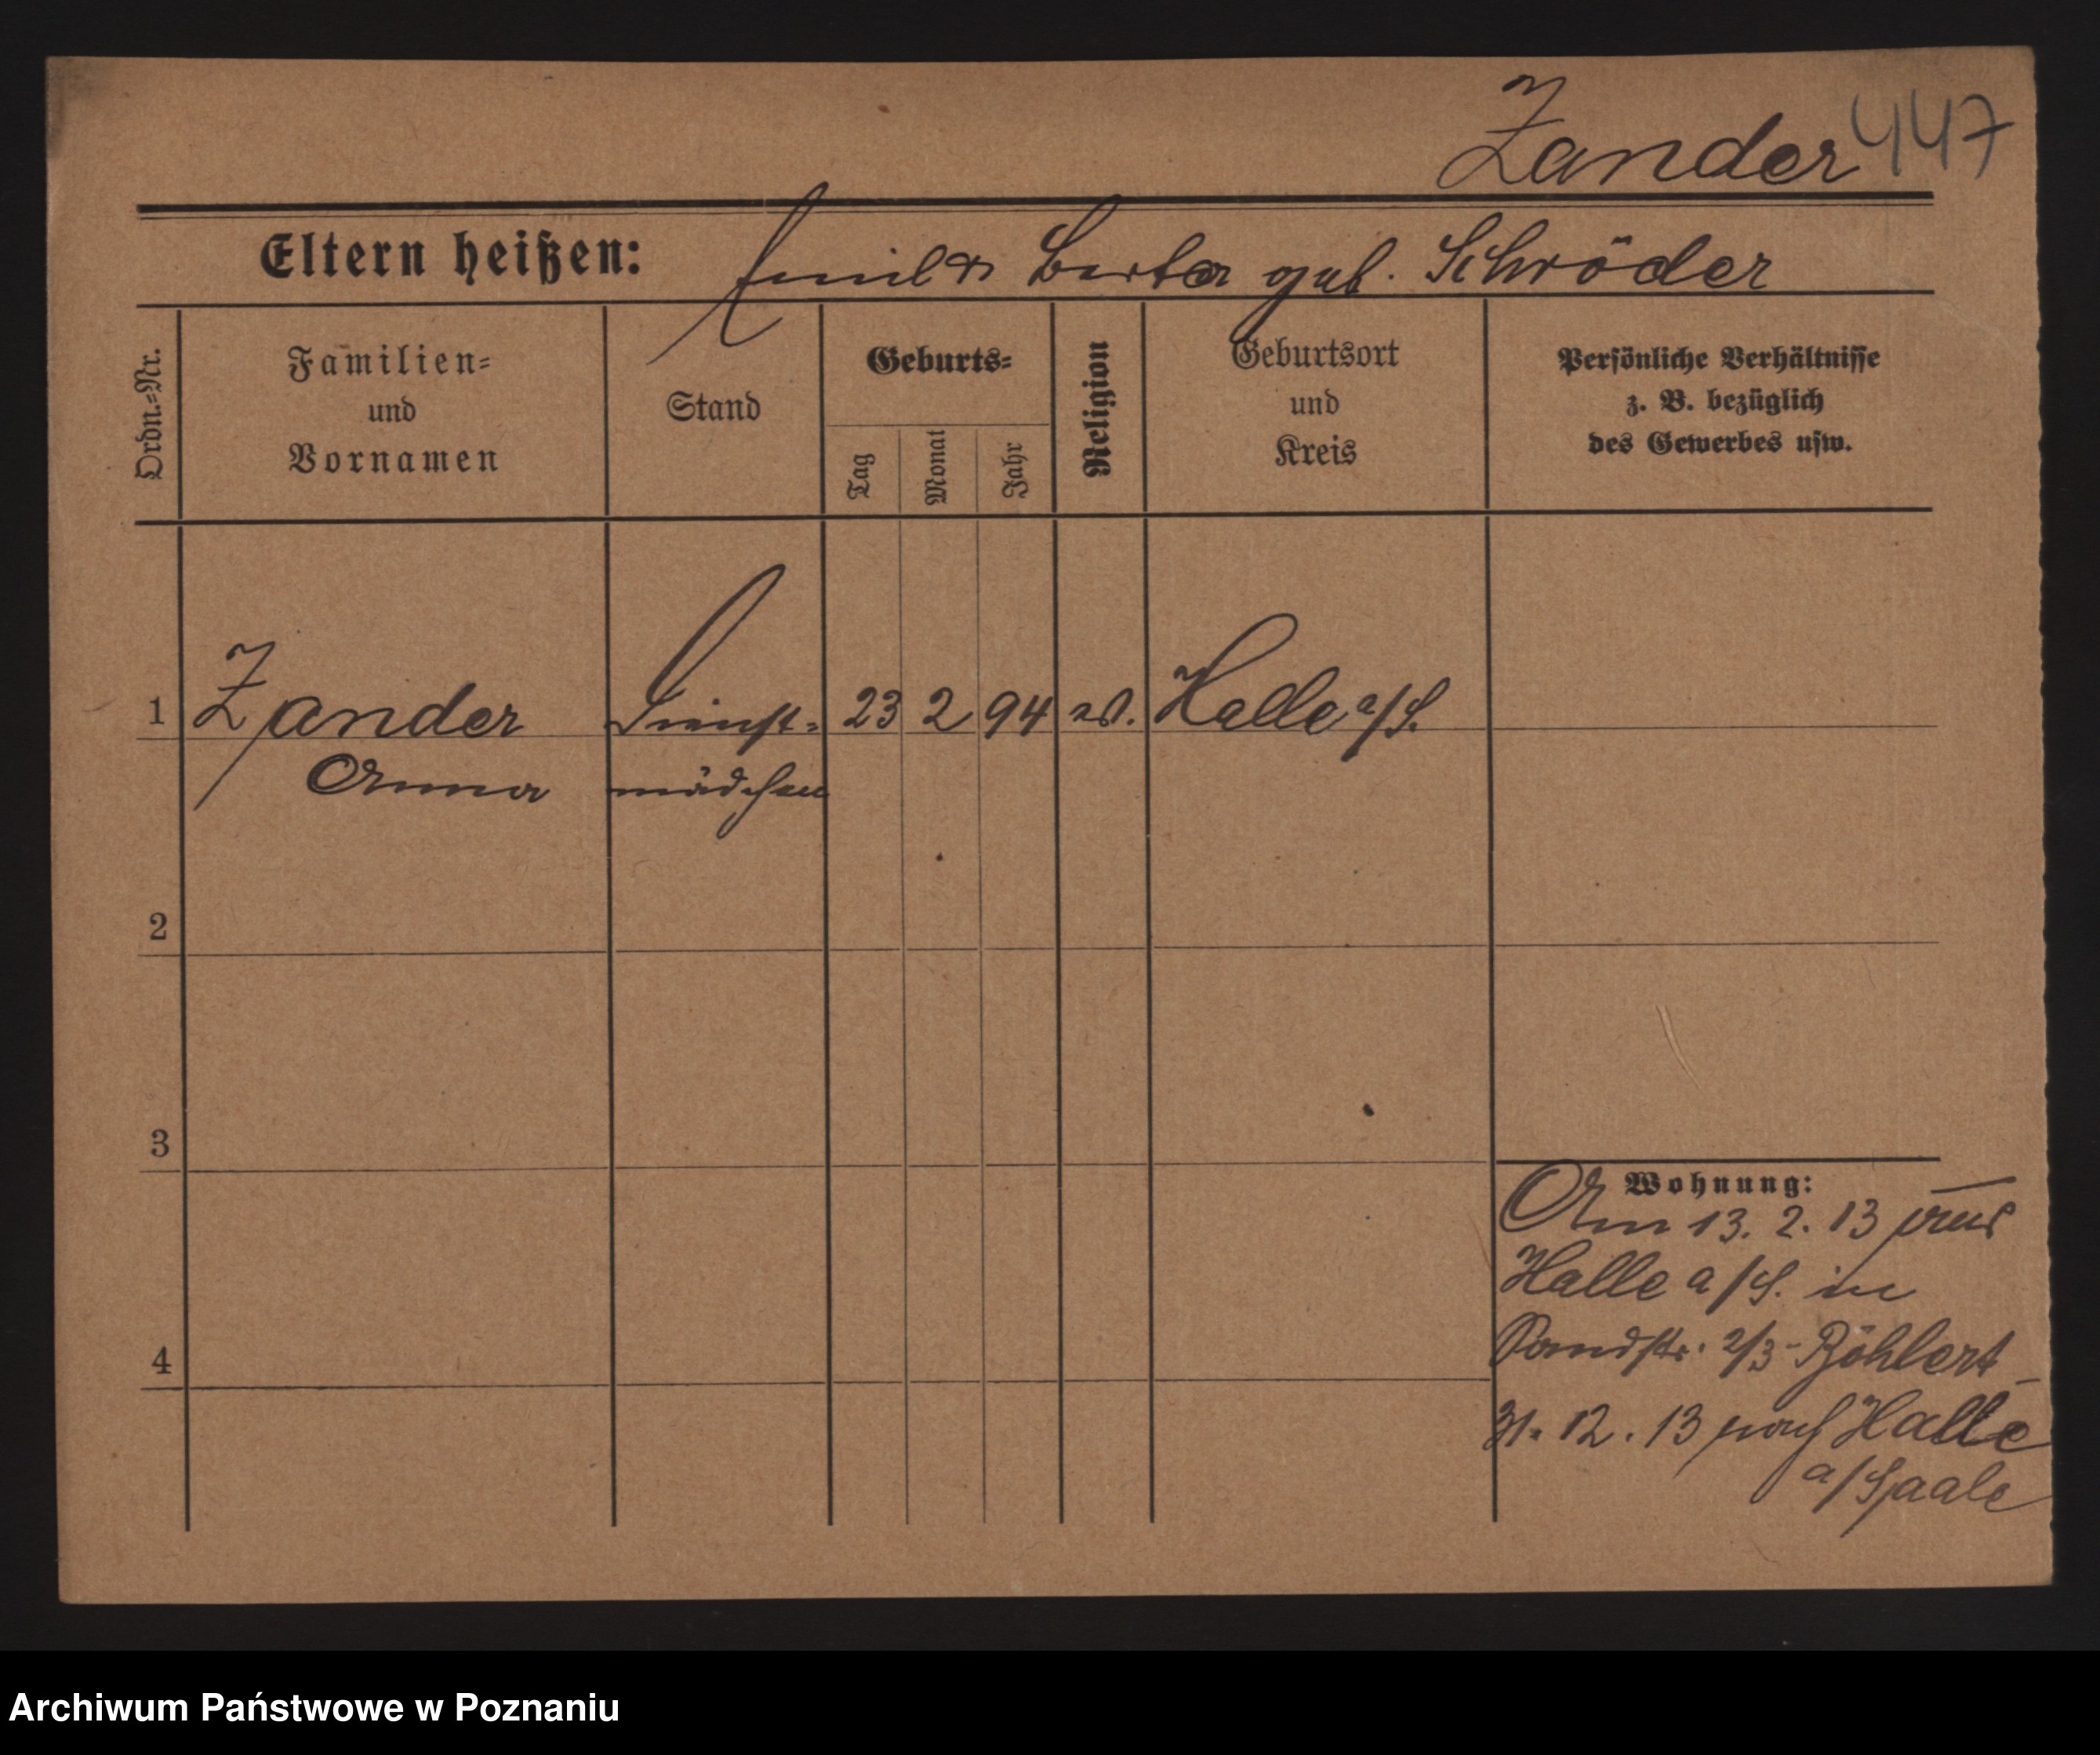 Zander 447
Eltern heißen: Emil & Berta geb. Schröder
Ordn.=Nr.
Familien=
und
Vornamen
Stand
Geburts=
Tag
Monat
Jahr
Religion
Geburtsort
und
Kreis
Persönliche Verhältnisse
z. B. bezüglich
des Gewerbes usw.
1 Zander Dienst= 23 2 94 ev. Halle a/S.
Anna mädchen
2
3
4
Wohnung:
Am 13. 2. 13 aus
Halle a/S. in
2/3
31. 12. 13 nach Halle
a/Saale
Archiwum Państwowe w Poznaniu